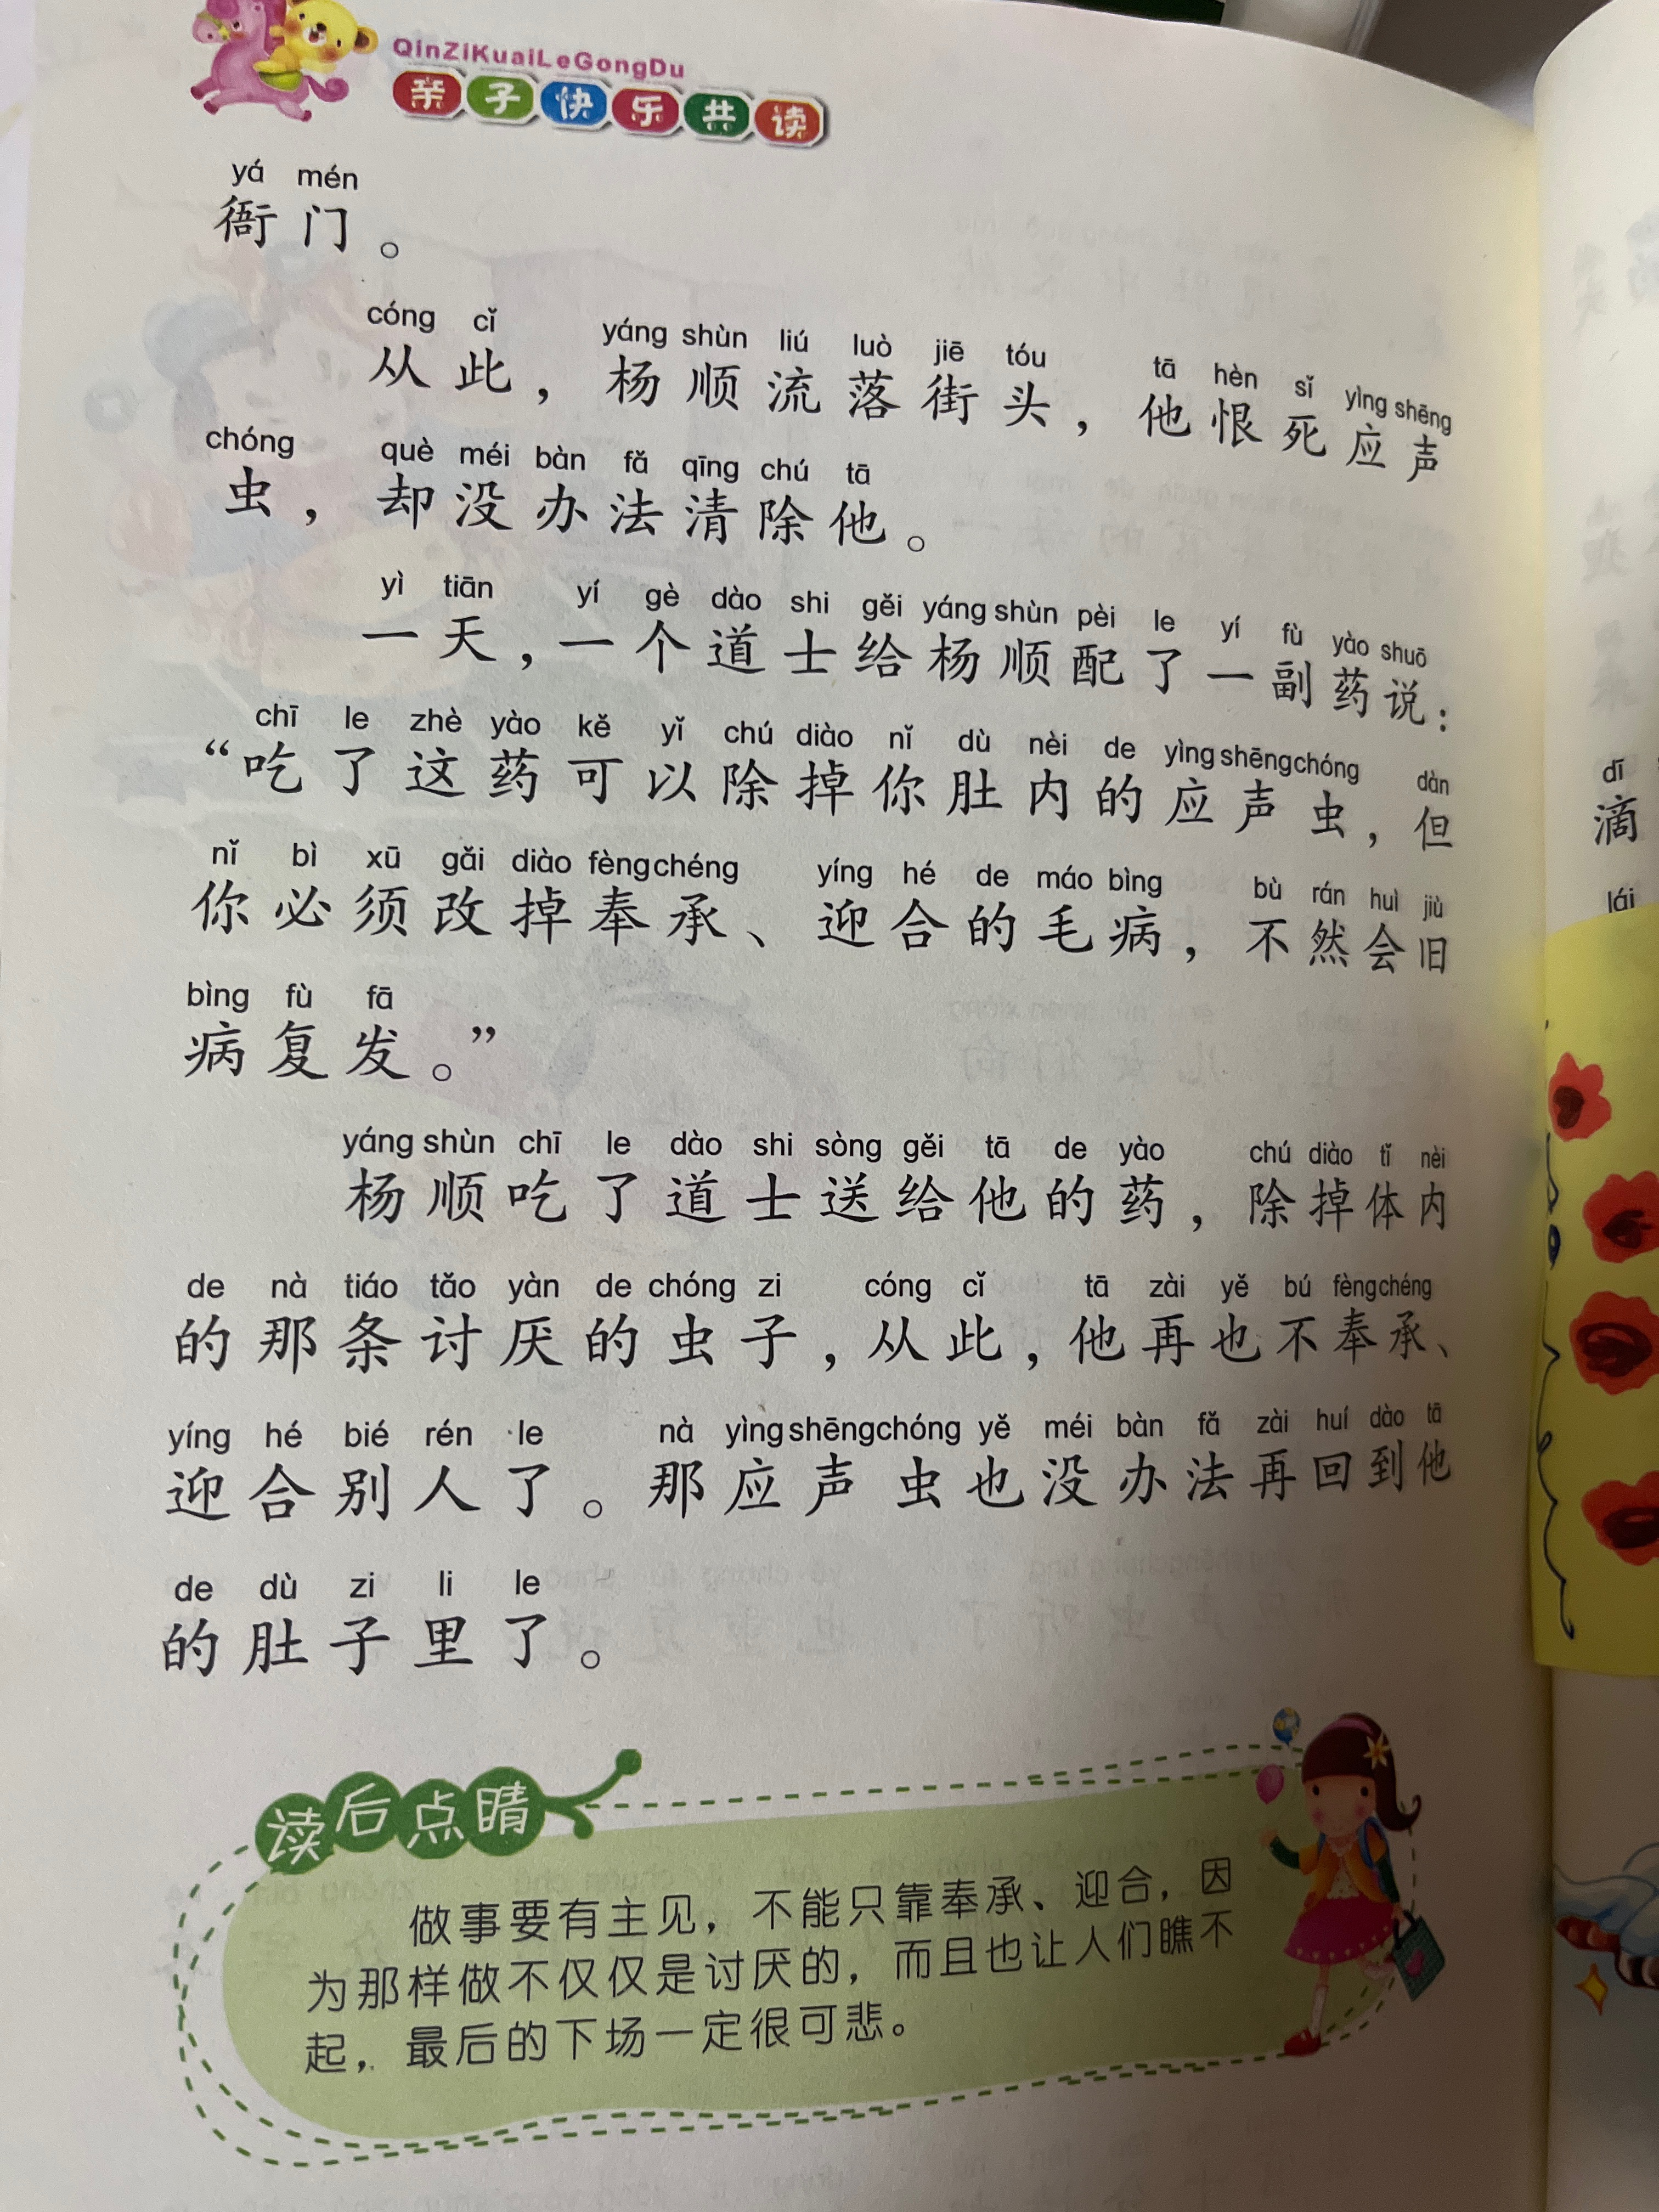 QinZiKuaiLeGongDu
亲子快乐共读
yá mén
衙门。
cóng cǐ yáng shùn liú luò jiē tóu tā hèn sǐ yìng shēng
从此，杨顺流落街头，他恨死应声
chóng què méi bàn fǎ qīng chú tā
虫，却没办法清除他。
yì tiān yí gè dào shi gěi yáng shùn pèi le yí fù yào shuō
一天，一个道士给杨顺配了一副药说：
chī le zhè yào kě yǐ chú diào nǐ dù nèi de yìng shēng chóng dàn
“吃了这药可以除掉你肚内的应声虫，但
nǐ bì xū gǎi diào fèng chéng yíng hé de máo bìng bù rán huì jiù
你必须改掉奉承、迎合的毛病，不然会旧
bìng fù fā
病复发。”
yáng shùn chī le dào shi sòng gěi tā de yào chú diào tǐ nèi
杨顺吃了道士送给他的药，除掉体内
de nà tiáo tǎo yàn de chóng zi cóng cǐ tā zài yě bú fèng chéng
的那条讨厌的虫子，从此，他再也不奉承、
yíng hé bié rén le nà yìng shēng chóng yě méi bàn fǎ zài huí dào tā
迎合别人了。那应声虫也没办法再回到他
de dù zi li le
的肚子里了。
读后点睛
做事要有主见，不能只靠奉承、迎合，因
为那样做不仅仅是讨厌的，而且也让人们瞧不
起，最后的下场一定很可悲。
dī
滴
lái